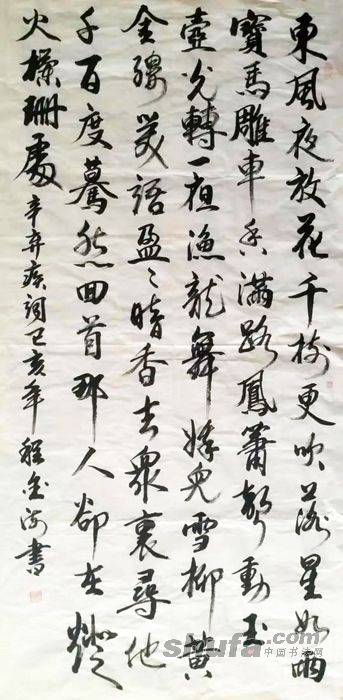 東風夜放花千樹更吹落星如雨
寶馬雕車香滿路鳳簫聲動玉
壺光轉一夜漁龍舞蛾兒雪柳黃
金縷笑語盈盈暗香去眾裏尋他
千百度驀然回首那人卻在燈
火闌珊處辛弃疾詞己亥年程金海書
shufa.com
中国书法网